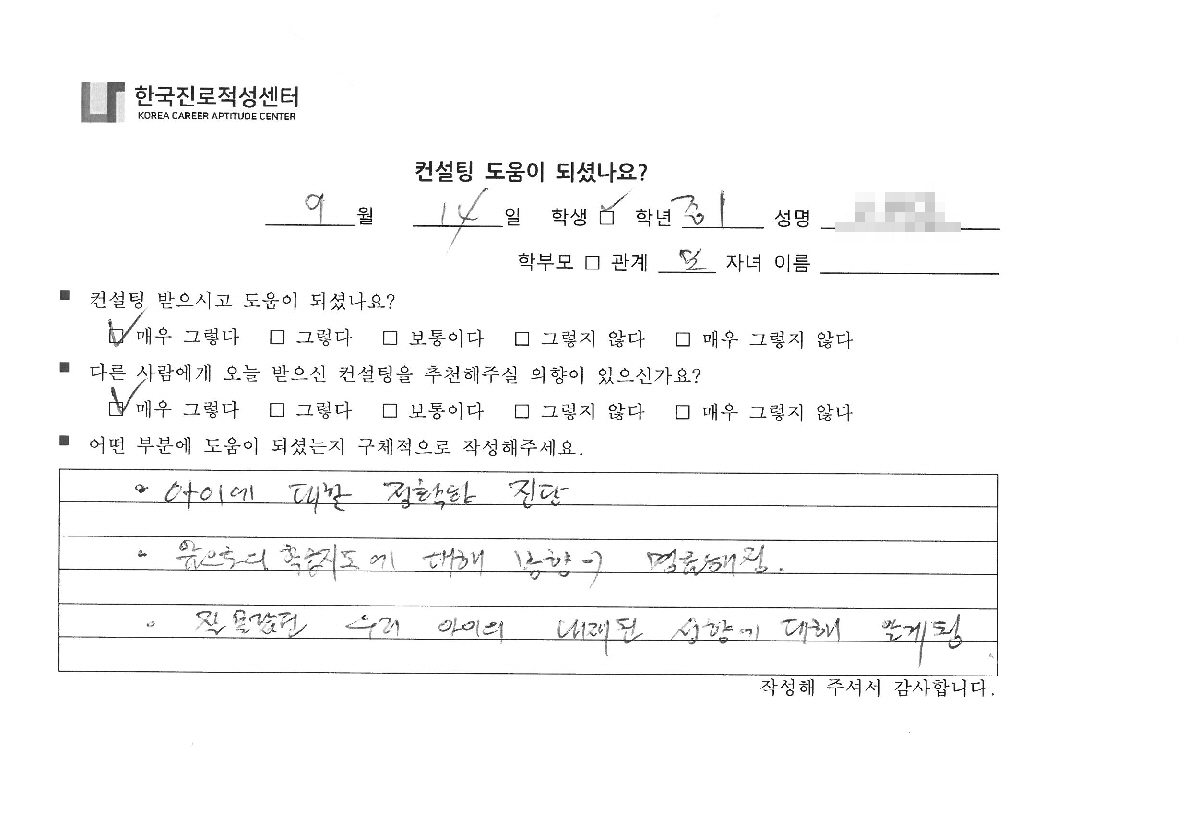 한국진로적성센터
KOREA CAREER APTITUDE CENTER
컨설팅 도움이 되셨나요?
9 월 14 일 학생 ☑ 학년 중1 성명
학부모 □ 관계 모 자녀 이름
■ 컨설팅 받으시고 도움이 되셨나요?
☑ 매우 그렇다 □ 그렇다 □ 보통이다 □ 그렇지 않다 □ 매우 그렇지 않다
■ 다른 사람에게 오늘 받으신 컨설팅을 추천해주실 의향이 있으신가요?
☑ 매우 그렇다 □ 그렇다 □ 보통이다 □ 그렇지 않다 □ 매우 그렇지 않다
■ 어떤 부분에 도움이 되셨는지 구체적으로 작성해주세요.
• 아이에 대한 정확한 진단
• 앞으로의 학습지도에 대해 방향이 명료해짐.
• 잘 몰랐던 우리 아이의 내재된 성향에 대해 알게됨
작성해 주셔서 감사합니다.